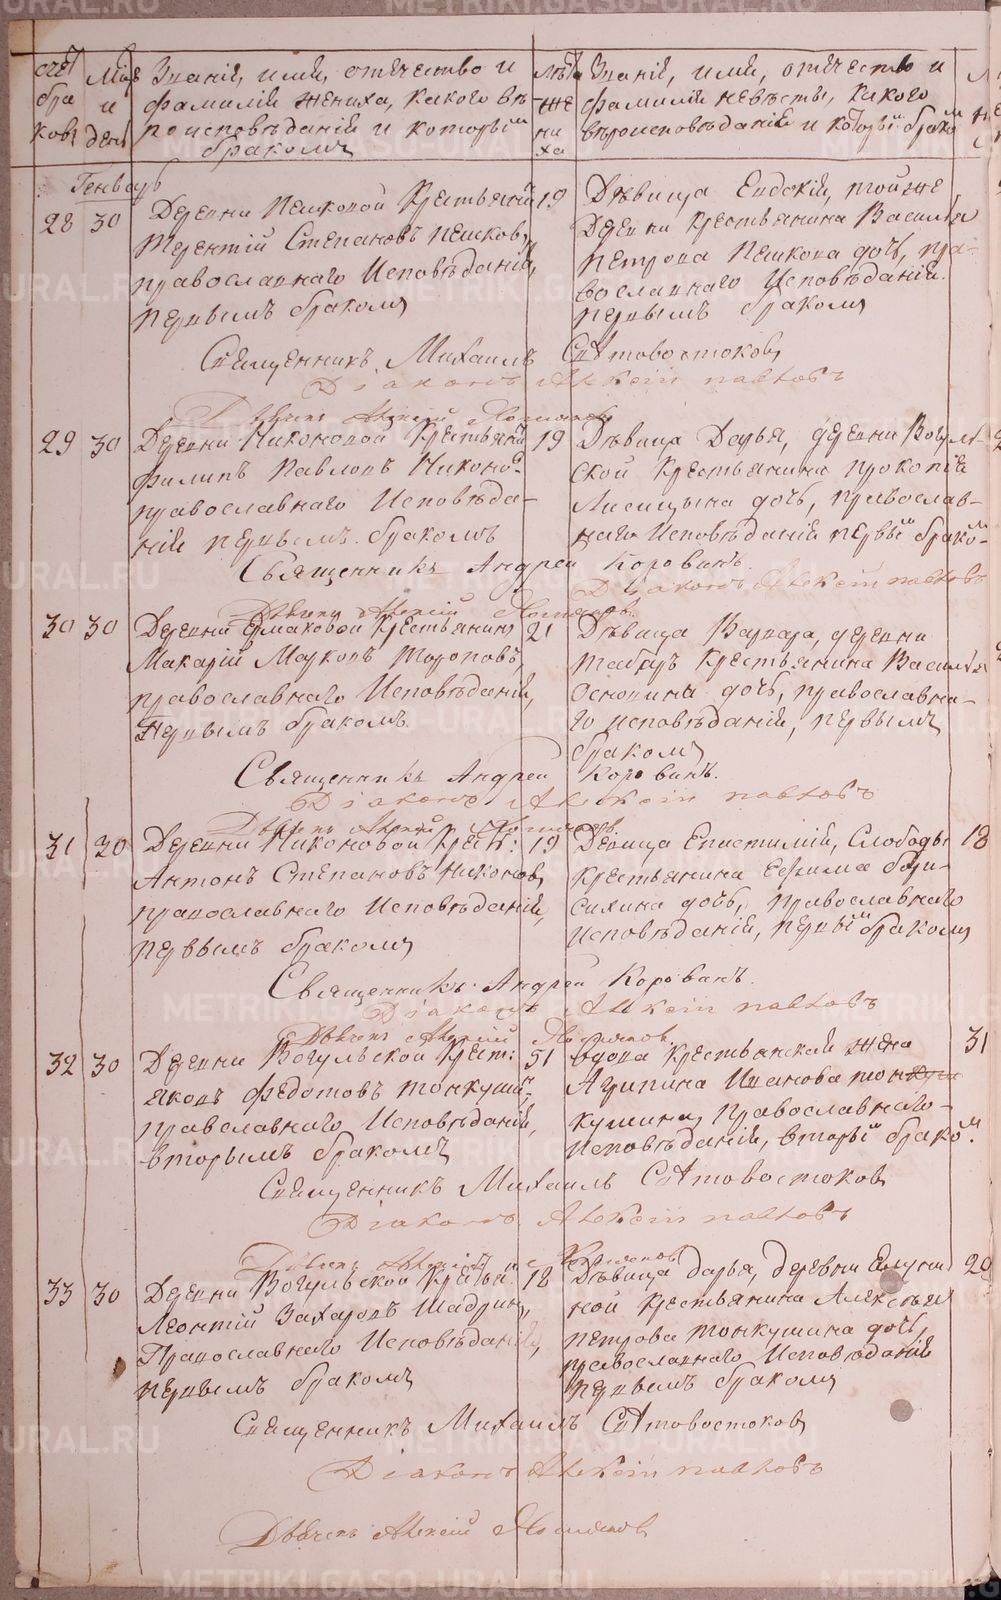 счетъ браковъ
Мсцъ и день
Званіе, имя, отчество и
фамилія жениха, какого вѣ-
роисповѣданія и которымъ
бракомъ
лѣта жениха
Званіе, имя, отчество и
фамилія невѣсты, какого
вѣроисповѣданія и которымъ бракомъ
Генварь
28 30 Деревни Пешковой Крестьянинъ 19
Терентій Степановъ Пешковъ,
православнаго Исповѣданія,
первымъ бракомъ
Дѣвица Евдокія, той же
Деревни Крестьянина Василья
Петрова Пешкова дочь, пра-
вославнаго Исповѣданія.
первымъ бракомъ
Священникъ Михаилъ Свѣтовостоковъ
Діаконъ Алексій
Дьячекъ Алексій
29 30 Деревни Никоновой Крестьянинъ 19
Филипъ Павловъ Никоновъ
православнаго Исповѣда-
нія первымъ бракомъ
Дѣвица Дарья, деревни Вогуль-
ской Крестьянина Прокопія
Лисицына дочь, православ-
наго Исповѣданія первымъ бракомъ
Священникъ Андрей Коровинъ.
Діаконъ Алексій
Дьячекъ Алексій
30 30 Деревни Ермаковой Крестьянинъ 21
Макарій Марковъ Тороповъ,
православнаго Исповѣданія,
первымъ бракомъ
Дѣвица Варвара, деревни
Табаръ Крестьянина Василья
Оснопина дочь, православна-
го исповѣданія, первымъ
бракомъ
Священникъ Андрей Коровинъ.
Діаконъ Алексій
Дьячекъ Алексій
31 30 Деревни Никоновой Крест: 19
Антонъ Степановъ Никоновъ,
православнаго Исповѣданія,
первымъ бракомъ
Девица Епистимія, Слободы 18
Крестьянина Ефима Бори-
сихина дочь, православнаго
Исповѣданія, первымъ бракомъ
Священникъ Андрей Коровинъ.
Діаконъ Алексій
Дьячекъ Алексій
32 30 Деревни Вогульской Крест: 51
Яковъ Федотовъ Тонкушинъ,
православнаго Исповѣданія,
вторымъ бракомъ
вдова Крестьянская жена 31
Агрипина Иванова Тон-
кушина, Православнаго
Исповѣданія, вторымъ бракомъ.
Священникъ Михаилъ Свѣтовостоковъ
Діаконъ Алексій
Дьячекъ Алексій
33 30 Деревни Вогульской Кретьян. 18
Леонтій Захаровъ Шадринъ,
Православнаго Исповѣданія,
первымъ бракомъ
Дѣвица Дарья, деревни Елуни- 20
ной Крестьянина Алексѣя
Петрова Тонкушина дочь,
православнаго Исповѣданія
первымъ бракомъ
Священникъ Михаилъ Свѣтовостоковъ
Діаконъ Алексій
Дьячекъ Алексій
METRIKI.GASO-URAL.RU